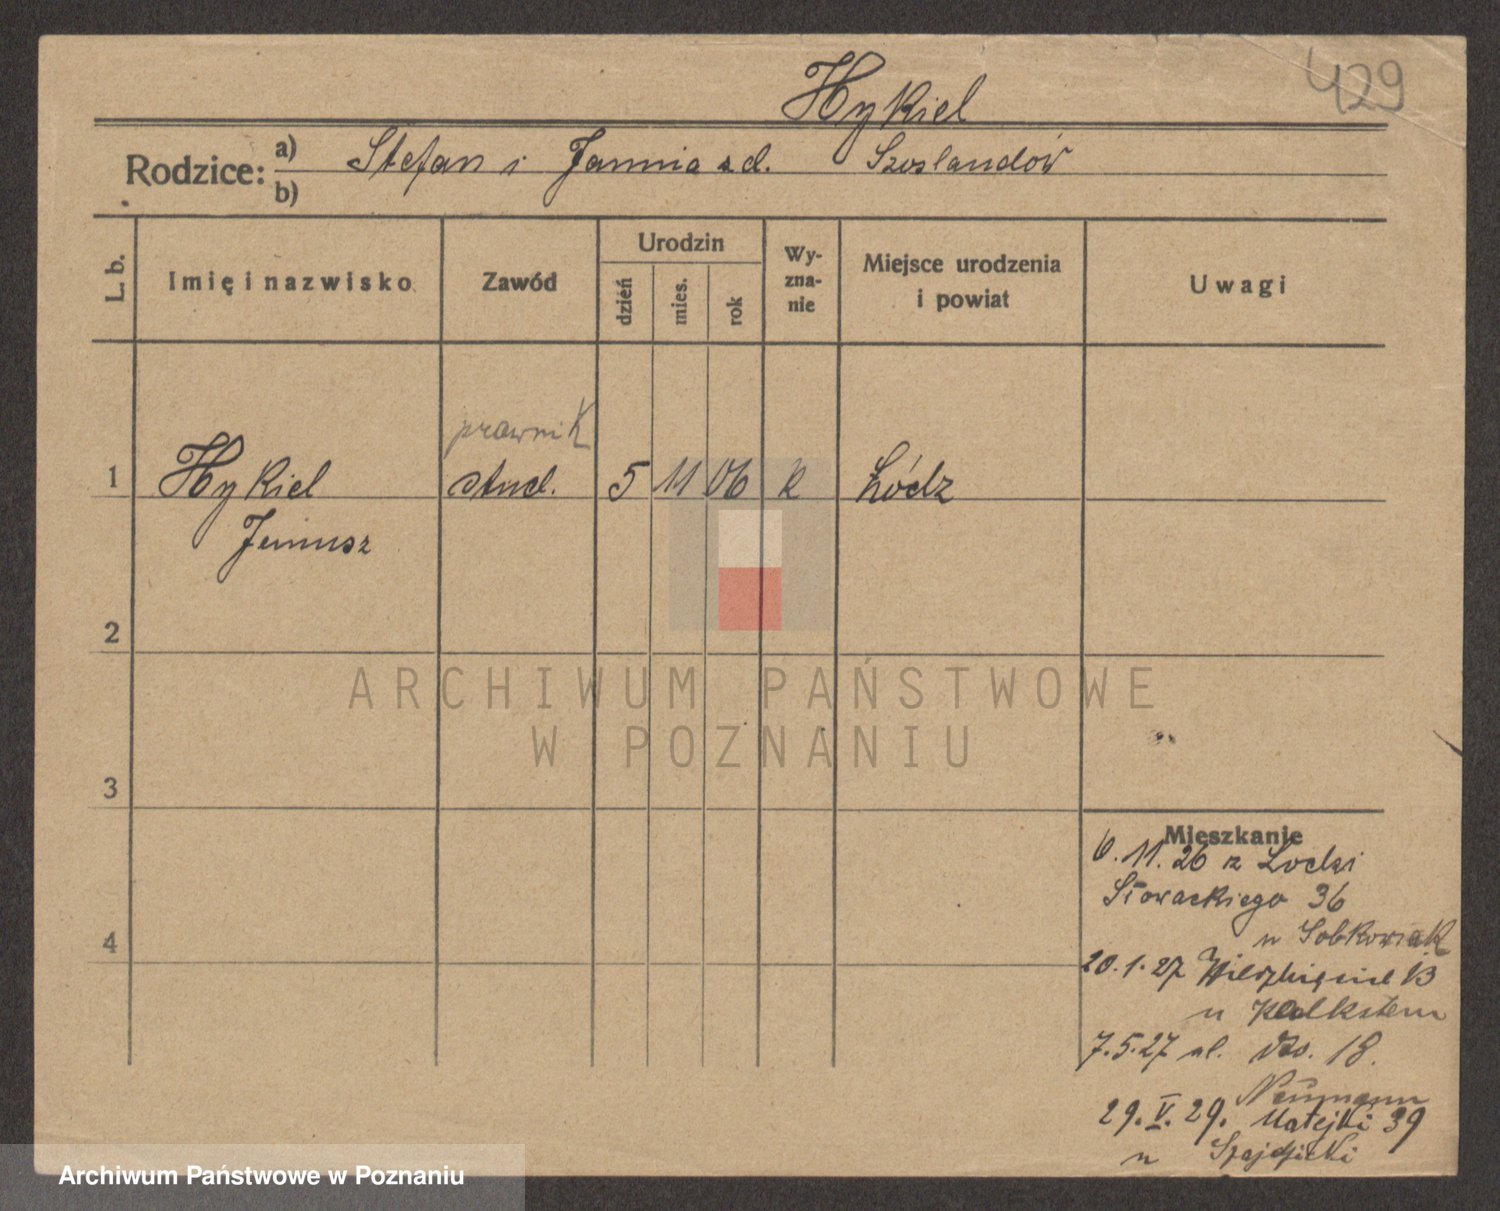 429
Hykiel
Rodzice: a) Stefan i Janina z d. Szoslandów
b)
L. b.
Imię i nazwisko
Zawód
Urodzin
dzień
mies.
rok
Wy-
zna-
nie
Miejsce urodzenia
i powiat
Uwagi
prawnik
1 Hykiel stud. 5 11 06 k Łódz
Janusz
2
3
4
ARCHIWUM PAŃSTWOWE
W POZNANIU
Mieszkanie
6.11.26 z Lodzi
Słowackiego 36
u Sobkowiak
20.1.27 Wierzbięcice 13
u Kalkstein
7.5.27 ul. dto. 18.
Neumann
29.V.29. Matejki 39
u Szajdzicki
Archiwum Państwowe w Poznaniu